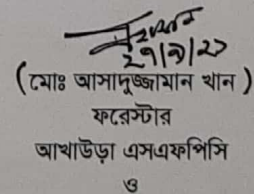 ২৭/৯/২১
(মোঃ আসাদুজ্জামান খান)
ফরেস্টার
আখাউড়া এসএফপিসি
ও